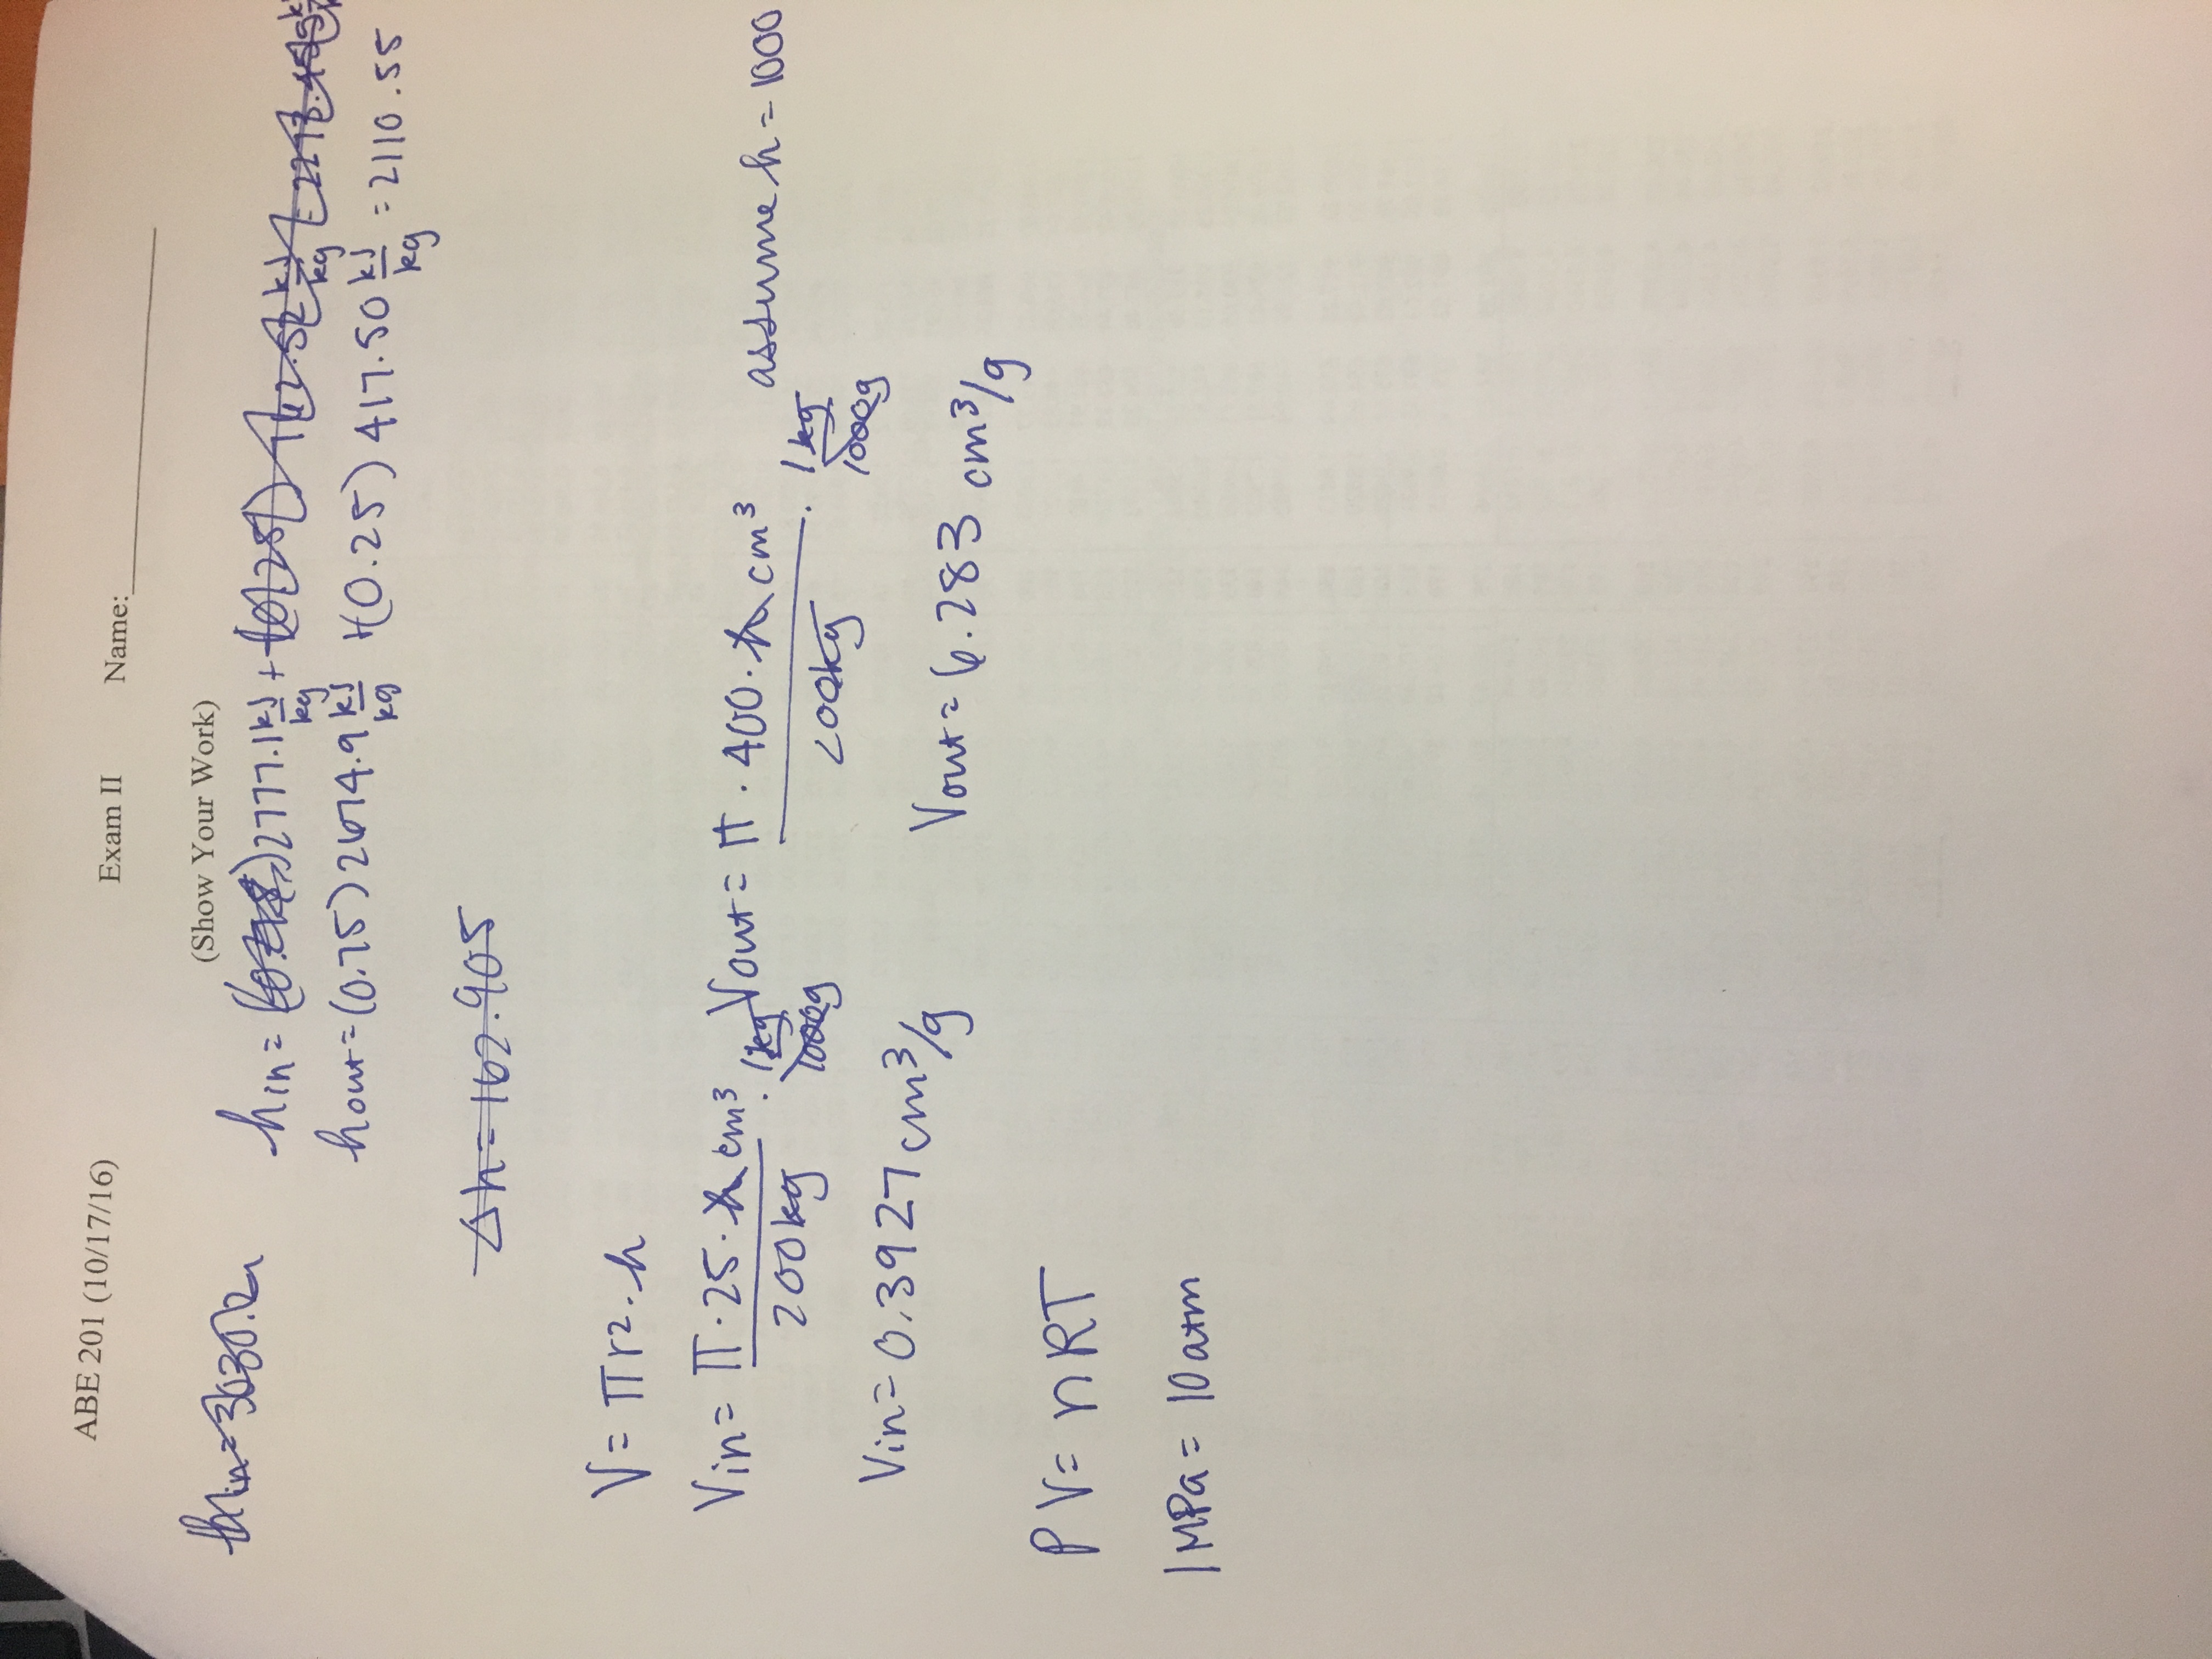 ABE 201 (10/17/16) Exam II Name:
(Show Your Work)
hin = 3030.2
hin = 2777.1 kJ/kg + (0.25) 762.52 kJ/kg = 2273.455 kJ/k
hout = (0.75) 2674.9 kJ/kg + (0.25) 417.50 kJ/kg = 2110.55
Δh = 162.905
V = πr². h
Vin = π·25·h cm³ / 200kg · 1kg / 1000g Vout = π · 400 · h cm³ / 200kg · 1kg / 1000g assume h = 1000
Vin = 0.3927 cm³/g Vout = 6.283 cm³/g
PV = nRT
1MPa = 10 atm